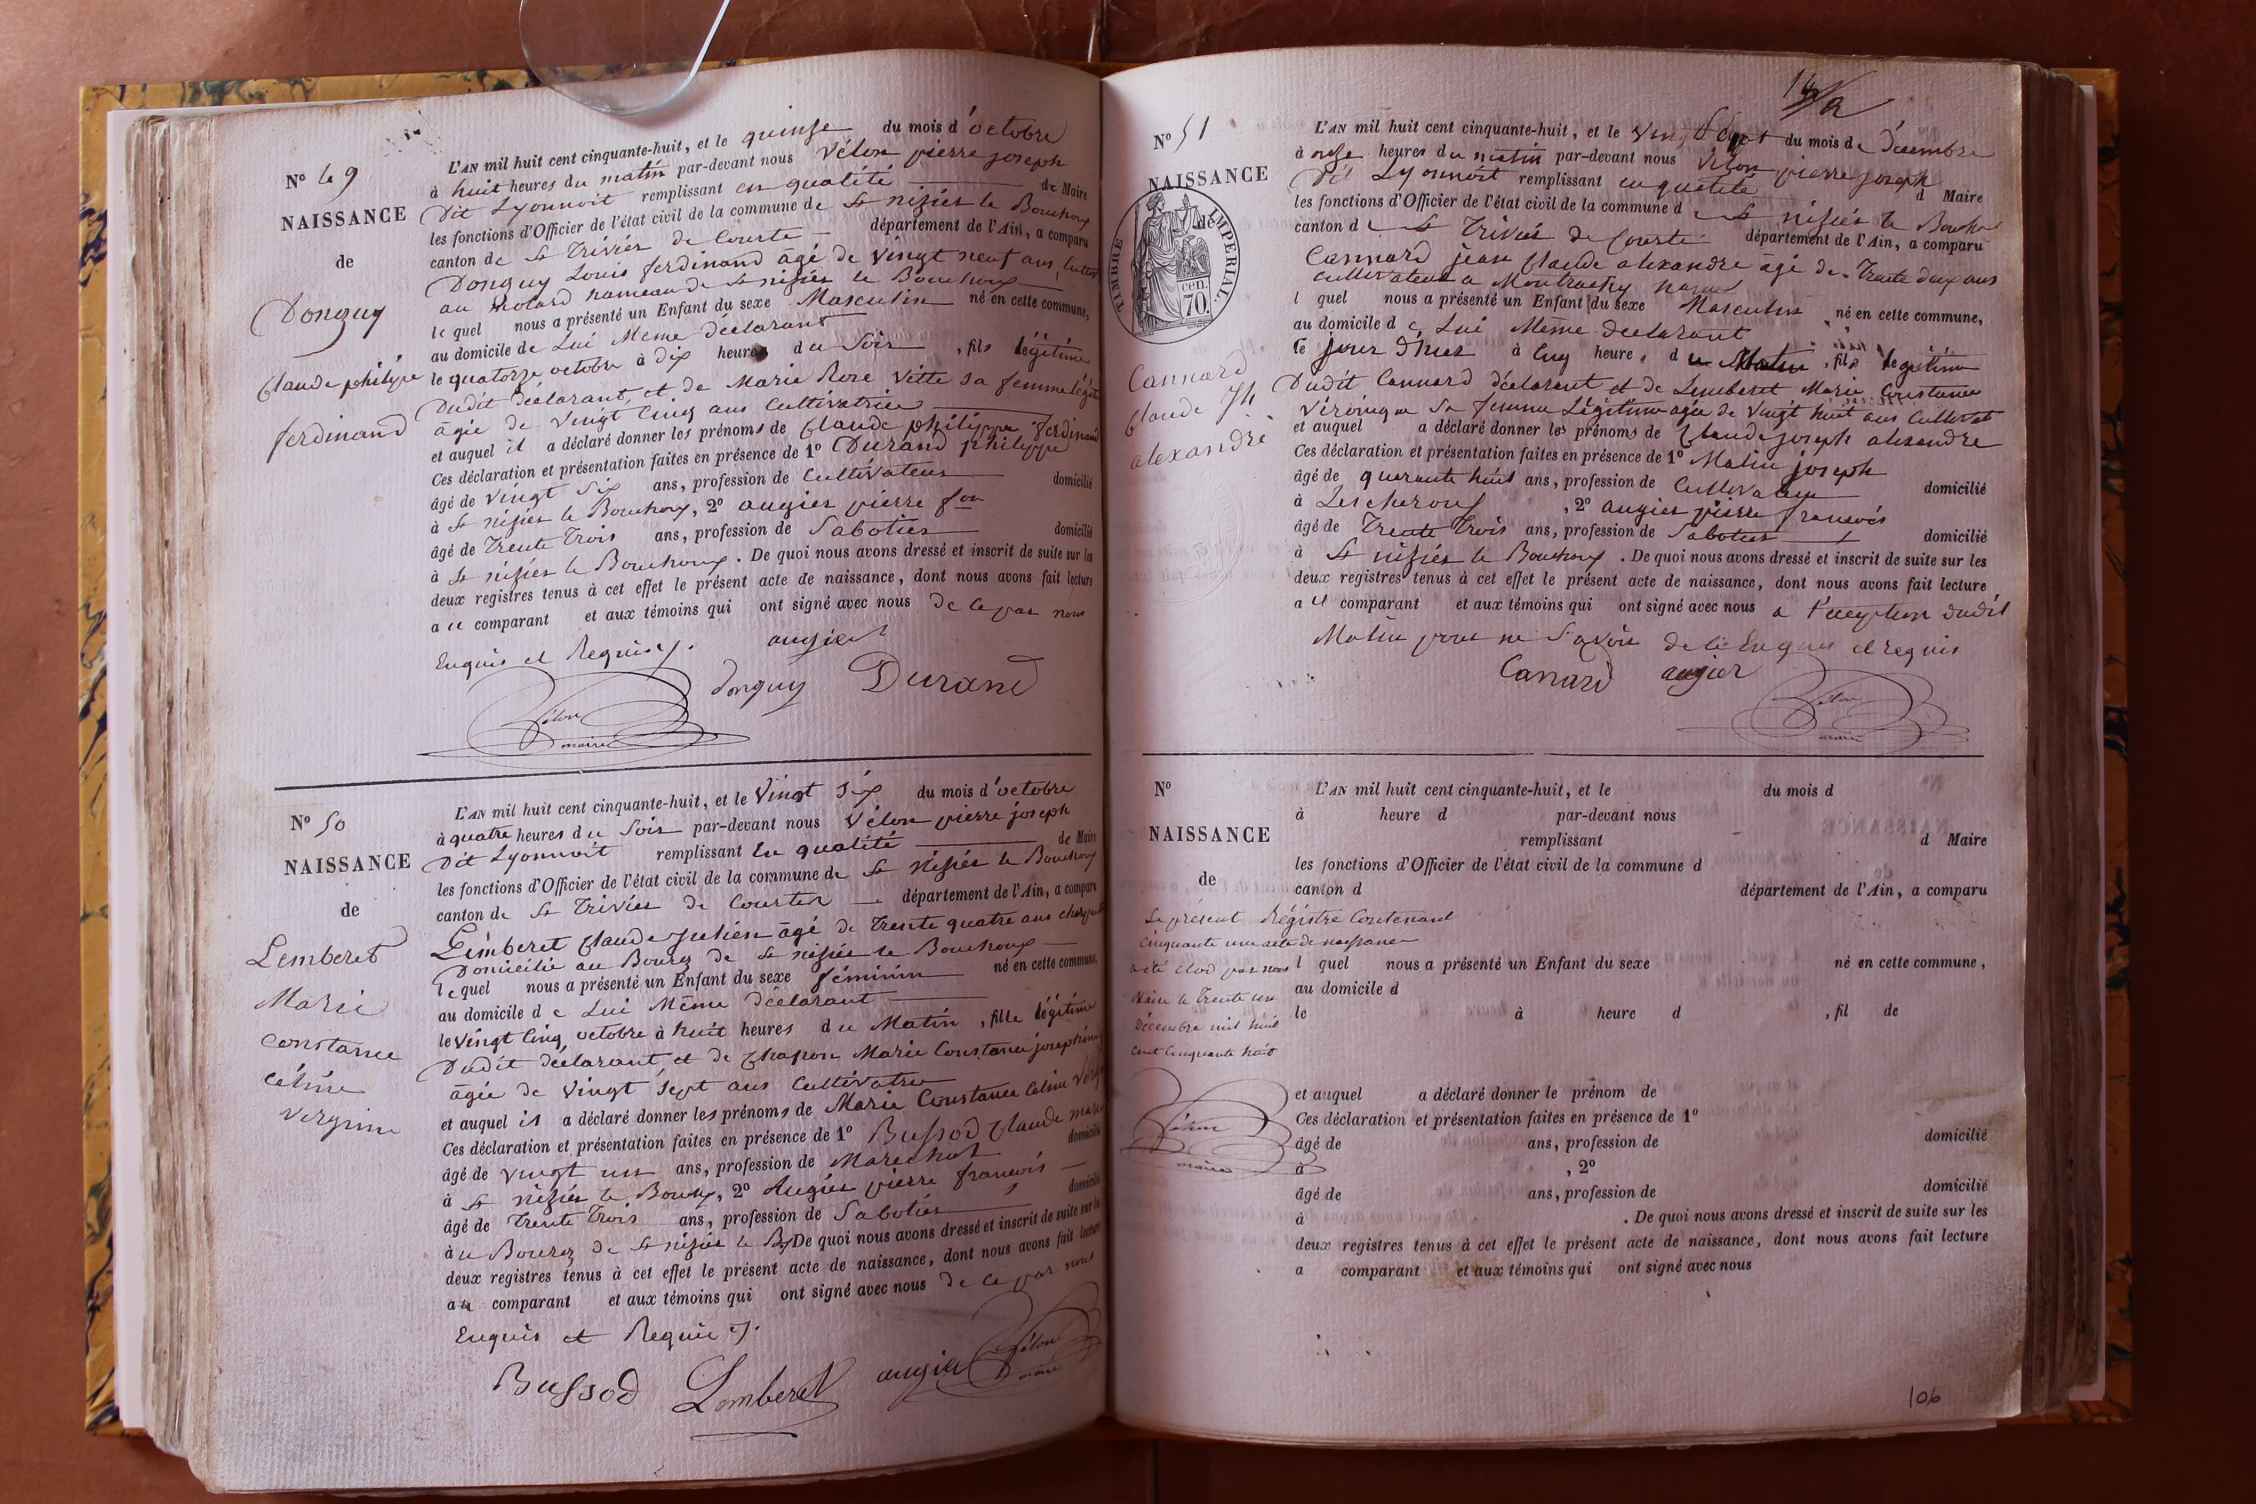 N° 49
NAISSANCE
de
Donguy
Claude philippe
ferdinand
L'AN mil huit cent cinquante-huit, et le quinze du mois d'octobre
à huit heures du matin par-devant nous Vélon pierre joseph
Dit Lyonnoit remplissant en qualité de Maire
les fonctions d'Officier de l'état civil de la commune de St nizier le Bouchoux
canton de St Trivier de Courte département de l'Ain, a comparu
Donguy Louis ferdinand âgé de vingt neuf ans,
au Molard hameau de St nizier le Bouchoux
le quel nous a présenté un Enfant du sexe Masculin né en cette commune,
au domicile de Lui Meme déclarant
le quatorze octobre à dix heures du Soir , fils légitime
Dudit déclarant, et de Marie Rose Vitte sa femme
âgée de vingt cinq ans Cultivatrice
et auquel il a déclaré donner les prénoms de Claude philippe ferdinand
Ces déclaration et présentation faites en présence de 1° Durand philippe
âgé de vingt Six ans, profession de Cultivateur domicilié
à St nizier le Bouchoux, 2° augier pierre fois
âgé de Trente Trois ans, profession de Sabotier domicilié
à St nizier le Bouchoux. De quoi nous avons dressé et inscrit de suite sur les
deux registres tenus à cet effet le présent acte de naissance, dont nous avons fait lecture
au comparant et aux témoins qui ont signé avec nous de ce par nous
Enquis et Requis.
augier
donguy Durand
Vélon
maire
N° 50
NAISSANCE
de
Lemberet
Marie
constance
céline
Verginie
L'AN mil huit cent cinquante-huit, et le Vingt Six du mois d'octobre
à quatre heures du Soir par-devant nous Vélon pierre joseph
Dit Lyonnoit remplissant en qualité de Maire
les fonctions d'Officier de l'état civil de la commune de St Nizier le Bouchoux
canton de St Trivier de Courtes département de l'Ain, a comparu
Lemberet Claude julien âgé de Trente quatre ans
Domicilié au Bourg de St nizier le Bouchoux
lequel nous a présenté un Enfant du sexe féminin né en cette commune,
au domicile de Lui Même déclarant
le Vingt Cinq octobre à huit heures du Matin , fille légitime
Dudit déclarant, et de Chapon Marie Constance joséphine
âgée de Vingt Sept ans Cultivatrice
et auquel il a déclaré donner les prénoms de Marie Constance Celine
Ces déclaration et présentation faites en présence de 1° Bussod Claude marie
âgé de vingt un ans, profession de Marechal domicilié
à St nizier le Boux, 2° Augier pierre francois
âgé de Trente Trois ans, profession de Sabotier domicilié
au Bourg de St nizier le Bx De quoi nous avons dressé et inscrit de suite sur les
deux registres tenus à cet effet le présent acte de naissance, dont nous avons fait lecture
au comparant et aux témoins qui ont signé avec nous de ce par nous
Enquis et Requis.
Bussod Lemberet augier Vélon
maire
N° 51
NAISSANCE
de
TIMBRE IMPERIAL.
70 cen.
Cannard
Claude Jh
alexandre
L'AN mil huit cent cinquante-huit, et le Vingt Sept du mois de Décembre
à onze heures du matin par-devant nous Vélon pierre joseph
Dit Lyonnoit remplissant en qualité d Maire
les fonctions d'Officier de l'état civil de la commune de St nizier le Bouchoux
canton de St Trivier de Courte département de l'Ain, a comparu
Cannard jean Claude alexandre âgé de Trente deux ans
cultivateur a Montrachy
l quel nous a présenté un Enfant du sexe Masculin né en cette commune,
au domicile de Lui Même déclarant
le jour d'hier à Cinq heures du Matin , fils légitime
Dudit Cannard déclarant et de Lemberet Marie Constance
Véronique Sa femme Légitime agée de Vingt huit ans Cultivat
et auquel a déclaré donner les prénoms de Claude joseph alexandre
Ces déclaration et présentation faites en présence de 1° Matin joseph
âgé de quarante huit ans, profession de Cultivateur domicilié
à Lescheroux , 2° augier pierre francois
âgé de Trente Trois ans, profession de Sabotier domicilié
à St nizier le Bouchoux. De quoi nous avons dressé et inscrit de suite sur les
deux registres tenus à cet effet le présent acte de naissance, dont nous avons fait lecture
au comparant et aux témoins qui ont signé avec nous a l'exception dudit
Matin pour ne Savoir de ce Enquis et requis
Canard augier
Vélon
maire
N°
NAISSANCE
de
L'AN mil huit cent cinquante-huit, et le du mois d
à heure d par-devant nous
remplissant d Maire
les fonctions d'Officier de l'état civil de la commune d
canton d département de l'Ain, a comparu
Le présent Régistre Contenant
cinquante une acte de naissance
a été clos par nous
Maire le Trente un
Décembre mil huit
cent cinquante huit
Vélon
maire
l quel nous a présenté un Enfant du sexe né en cette commune,
au domicile d
le à heure d , fil de
et auquel a déclaré donner le prénom de
Ces déclaration et présentation faites en présence de 1°
âgé de ans, profession de domicilié
à , 2°
âgé de ans, profession de domicilié
à . De quoi nous avons dressé et inscrit de suite sur les
deux registres tenus à cet effet le présent acte de naissance, dont nous avons fait lecture
a comparant et aux témoins qui ont signé avec nous
106